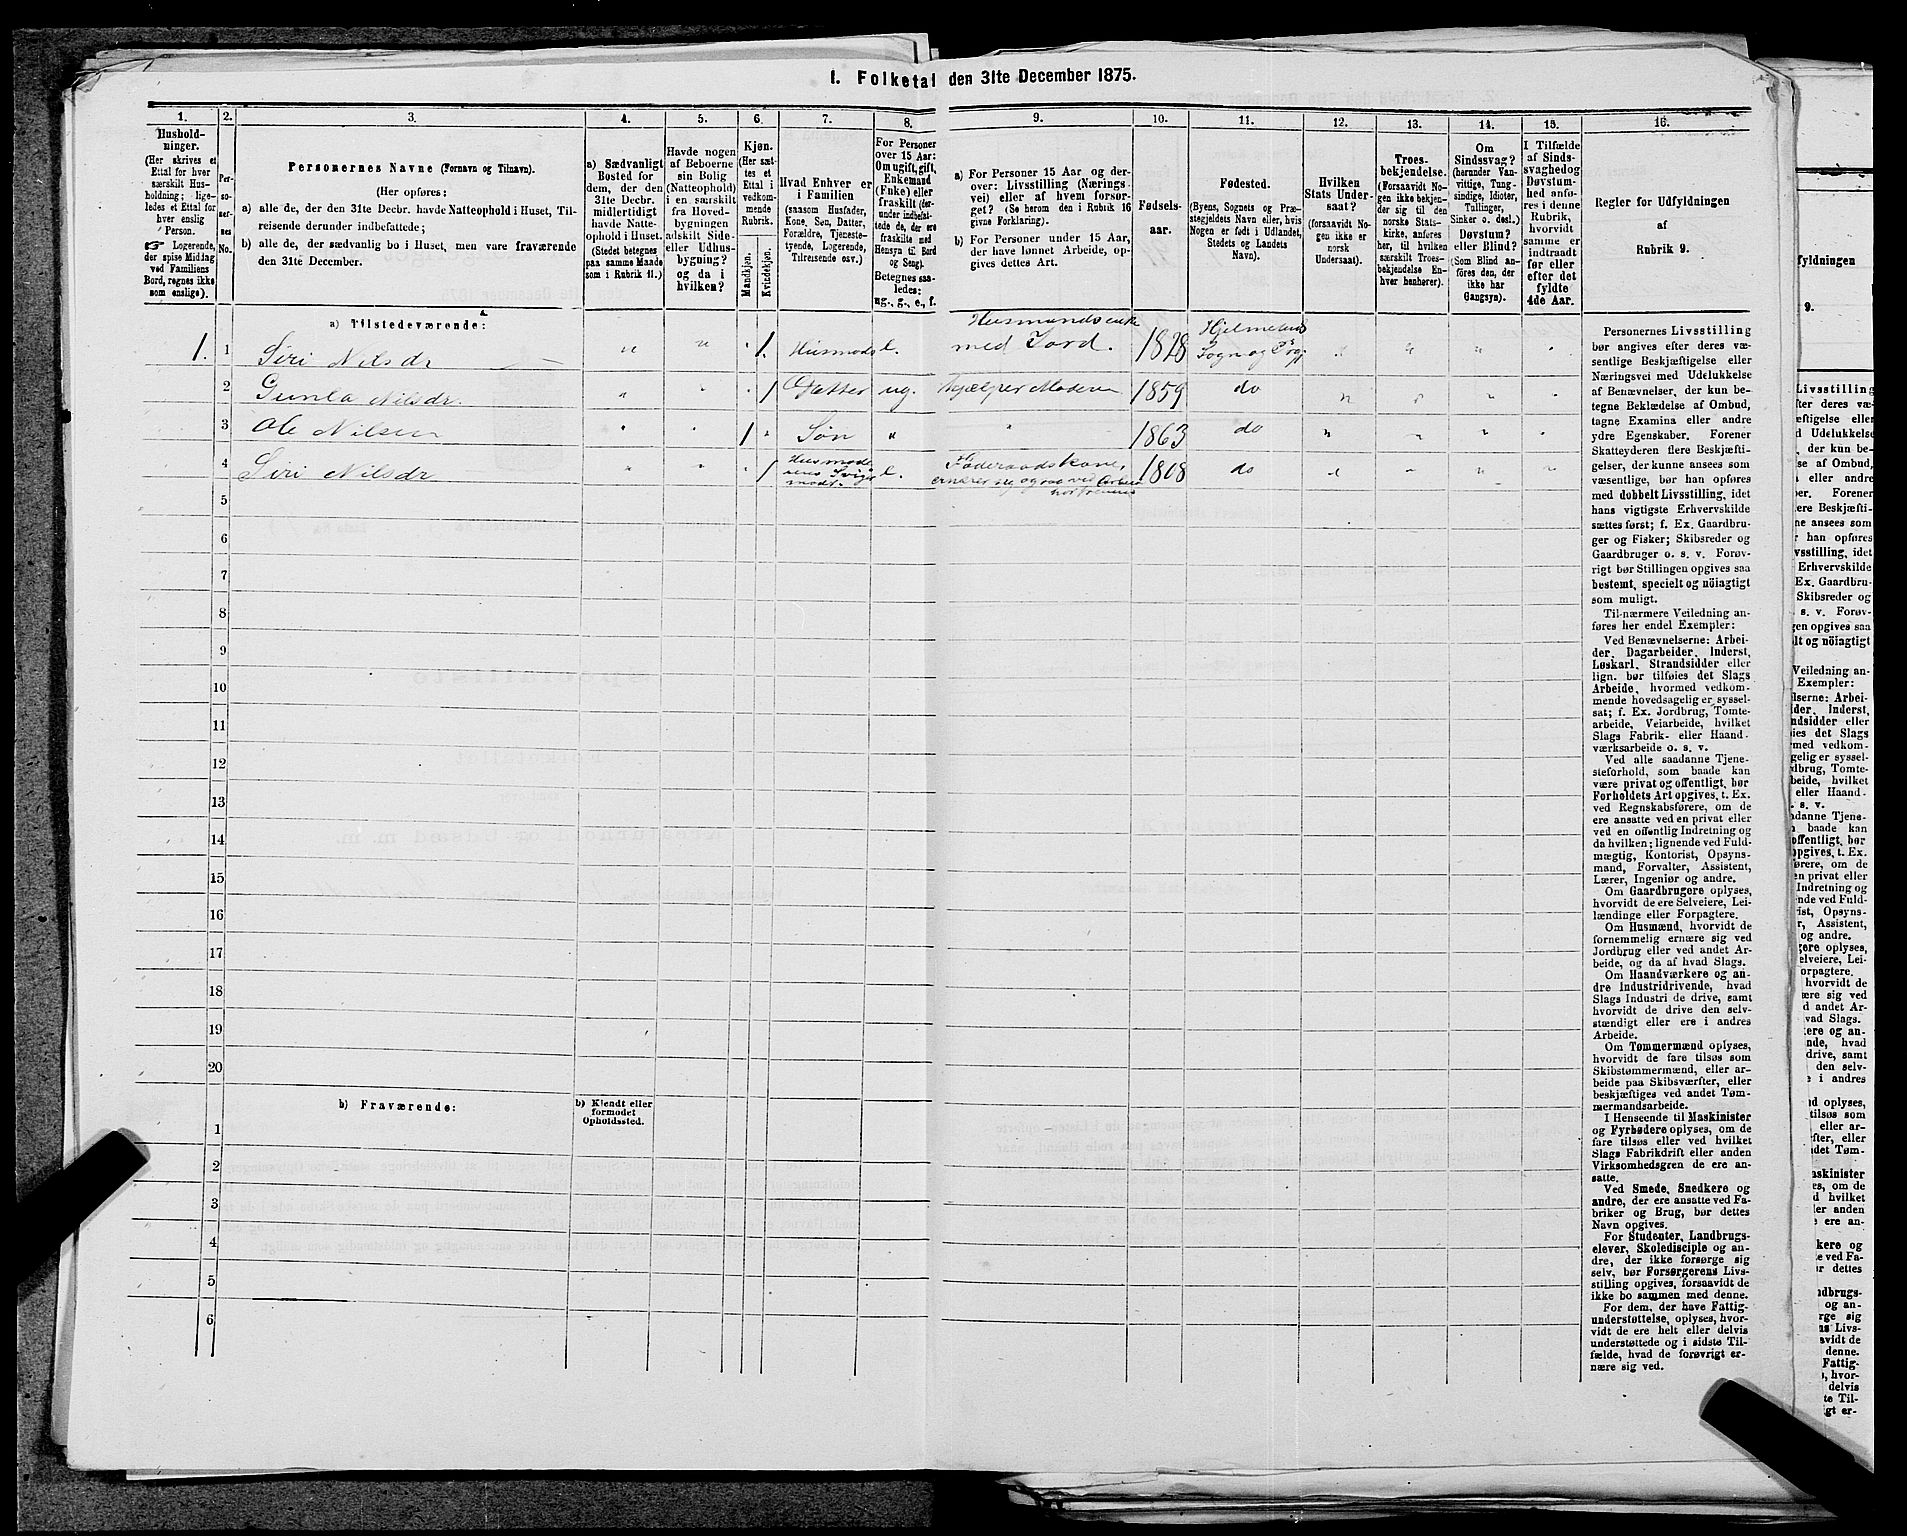 I. Folketal den 31te December 1875.
1. 2. 3. 4. 5. 6. 7. 8. 9. 10. 11. 12. 13. 14. 15. 16.
Hushold-
ninger.
(Her skrives et
Ettal for hver
særskilt Hus-
holdning; lige-
ledes et Ettal for
hver enslig
Person.
☞ Logerende,
der spise Middag
ved Familiens
Bord, regnes ikke
som enslige).
Per-
so-
ner-
nes
No.
Personernes Navne (Fornavn og Tilnavn).
(Her opføres:
a) alle de, der den 31te Decbr. havde Natteophold i Huset, Til-
reisende derunder indbefattede;
b) alle de, der sædvanlig bo i Huset, men vare fraværende
den 31te December.
a) Sædvanligt
Bosted for
dem, der den
31te Decbr.
midlertidigt
havde Natte-
ophold i Huset.
(Stedet betegnes
paa samme Maade
som i Rubrik 11.)
Havde nogen
af Beboerne
sin Bolig
(Natteophold)
i en særskilt
fra Hoved-
bygningen
adskilt Side-
eller Udhus-
bygning?
og da i
hvilken?
Kjøn.
(Her sæt-
tes et
Ettal i
vedkom-
mende
Rubrik.
Mandkjøn.
Kvindekjøn.
Hvad Enhver er
i Familien
(saasom Husfader,
Kone, Søn, Datter,
Forældre, Tjeneste-
tyende, Logerende,
Tilreisende osv.)
For Personer
over 15 Aar:
Om ugift, gift,
Enkemand
(Enke) eller
fraskilt (der-
under indbefat-
tede de, der ere
fraskilte med
Hensyn til Bord
og Seng).
Betegnes saa-
ledes:
ug., g., e., f.
a) For Personer 15 Aar og der-
over: Livsstilling (Nærings-
vei) eller af hvem forsør-
get? (Se herom den i Rubrik 16
givne Forklaring).
b) For Personer under 15 Aar,
der have lønnet Arbeide, op-
gives dettes Art.
Fødsels-
aar.
Fødested.
(Byens, Sognets og Præ-
stegjeldets Navn eller, hvis
Nogen er født i Udlandet,
Stedets og Landets
Navn).
Hvilken
Stats Under-
saat?
(forsaavidt No-
gen ikke er
norsk
Undersaat).
Troes-
bekjendelse.
(Forsaavidt No-
gen ikke bekjen-
der sig til den
norske Stats-
kirke, anføres
her, til hvilken
særskilt Troes-
bekjendelse En-
hver henhører).
Om
Sindssvag?
(herunder Van-
vittige, Tung-
sindige, Idioter,
Tullinger,
Sinker o. desl.)
Døvstum?
eller Blind?
(Som Blind an-
føres den, der
ikke har
Gangsyn).
I Tilfælde
af Sinds-
svaghed og
Døvstum-
hed anfø-
res i denne
Rubrik,
hvorvidt
samme er
indtraadt
før eller
efter det
fyldte
4de Aar.
Regler for Udfyldningen
af
Rubrik 9.
a) Tilstedeværende:
1. 1 Siri Nilsdr " " · 1. Husmods e. Husmandsenke
med Jord. 1828 Hjelmelands
Sogn og Prgj
2 Gunla Nilsdr. " " · 1 Datter ug. Hjælper Moderen 1859 do
3 Ole Nilsen " " 1 " Søn " " 1863 do
4 Siri Nilsdr " " 1 e. Føderaadskone, 1808 do
ernærer sig ogsaa ved
5
6
7
8
9
10
11
12
13
14
15
16
17
18
19
20
b) Fraværende:
b) Kjendt eller
formodet
Opholdssted.
1
2
3
4
5
6
Personernes Livsstilling
bør angives efter deres væ-
sentlige Beskjæftigelse eller
Næringsvei med Udelukkelse
af Benævnelser, der kun be-
tegne Beklædelse af Ombud,
tagne Examina eller andre
ydre Egenskaber. Forener
Skatteyderen flere Beskjæfti-
gelser, der kunne ansees som
væsentlige, bør han opføres
med dobbelt Livsstilling, idet
hans vigtigste Erhvervskilde
sættes først; f. Ex. Gaardbru-
ger og Fisker; Skibsreder og
Gaardbruger o. s. v. Forøv-
rigt bør Stillingen opgives saa
bestemt, specielt og nöiagtigt
som muligt.
Til nærmere Veiledning an-
føres her endel Exempler:
Ved Benævnelserne: Arbei-
der, Dagarbeider, Inderst,
Løskarl, Strandsidder eller
lign. bør tilføies det Slags
Arbeide, hvormed vedkom-
mende hovedsagelig er syssel-
sat; f. Ex. Jordbrug, Tomte-
arbeide, Veiarbeide, hvilket
Slags Fabrik- eller Haand-
værksarbeide o. s. v.
Ved alle saadanne Tjene-
steforhold, som baade kan
være privat og offentligt, bør
Forholdets Art opgives, t. Ex.
ved Regnskabsførere, om de
ere ansatte ved en privat eller
ved en offentlig Indretning og
da hvilken; lignende ved Fuld-
mægtig, Kontorist, Opsyns-
mand, Forvalter, Assistent,
Lærer, Ingeniør og andre.
Om Gaardbrugere oplyses,
hvorvidt de ere Selveiere, Lei-
lændinge eller Forpagtere.
Om Husmænd, hvorvidt de
fornemmelig ernære sig ved
Jordbrug eller ved andet Ar-
beide, og da af hvad Slags.
Om Haandværkere og an-
dre Industridrivende, hvad
Slags Industri de drive, samt
hvorvidt de drive den selv-
stændigt eller ere i andres
Arbeide.
Om Tømmermænd oplyses,
hvorvidt de fare tilsøs som
Skibstømmermænd, eller ar-
beide paa Skibsværfter, eller
beskjæftiges ved andet Tøm-
mermandsarbeide.
I Henseende til Maskinister
og Fyrbødere oplyses, om de
fare tilsøs eller ved hvilket
Slags Fabrikdrift eller anden
Virksomhedsgren de ere an-
satte.
Ved Smede, Snedkere og
andre, der ere ansatte ved Fa-
briker og Brug, bør dettes
Navn opgives.
For Studenter, Landbrugs-
elever, Skoledisciple og an-
dre, der ikke forsørge sig
selv, bør Forsørgerens Livs-
stilling opgives, forsaavidt de
ikke bo sammen med denne.
For dem, der have Fattig-
understøttelse, oplyses, hvor-
vidt de ere helt eller delvis
understøttede og i sidste Til-
fælde, hvad de forøvrigt er-
nære sig ved.